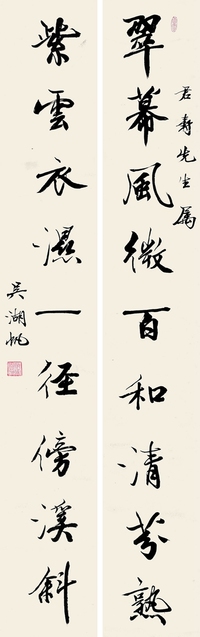 翠幕風微百和清芬熟
君壽先生属
紫雲衣濕一徑傍溪斜
吳湖帆